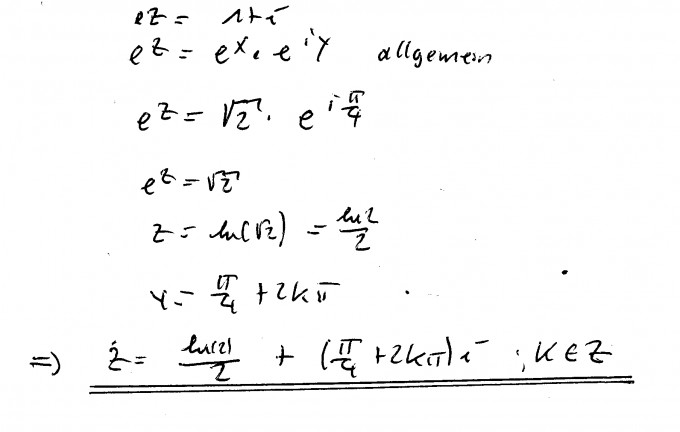 e^z = 1+i
e^z = e^x · e^{iy} allgemein
e^z = √2 · e^{i π/4}
e^z = √2
z = ln(√2) = ln2/2
y = π/4 + 2kπ
=) z = ln(2)/2 + (π/4 + 2kπ) i ; K ∈ Z